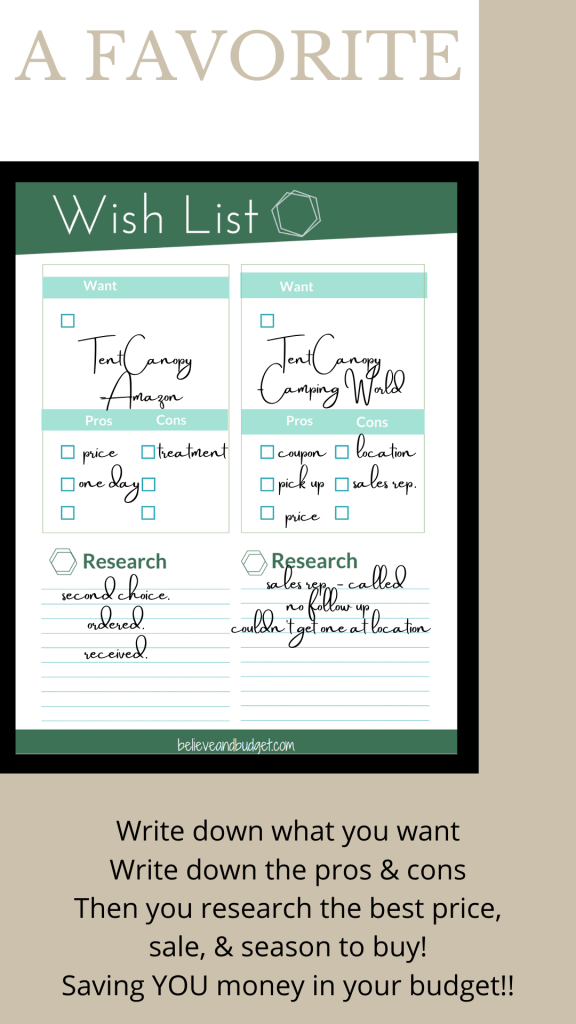 A FAVORITE
Wish List
Want
Tent Canopy
Amazon
Pros Cons
price treatment
one day
Research
second choice.
ordered.
received.
Want
Tent Canopy
Camping World
Pros Cons
coupon location
pick up sales rep.
price
Research
sales rep. - called
no follow up
couldn't get one at location
believeandbudget.com
Write down what you want
Write down the pros & cons
Then you research the best price,
sale, & season to buy!
Saving YOU money in your budget!!